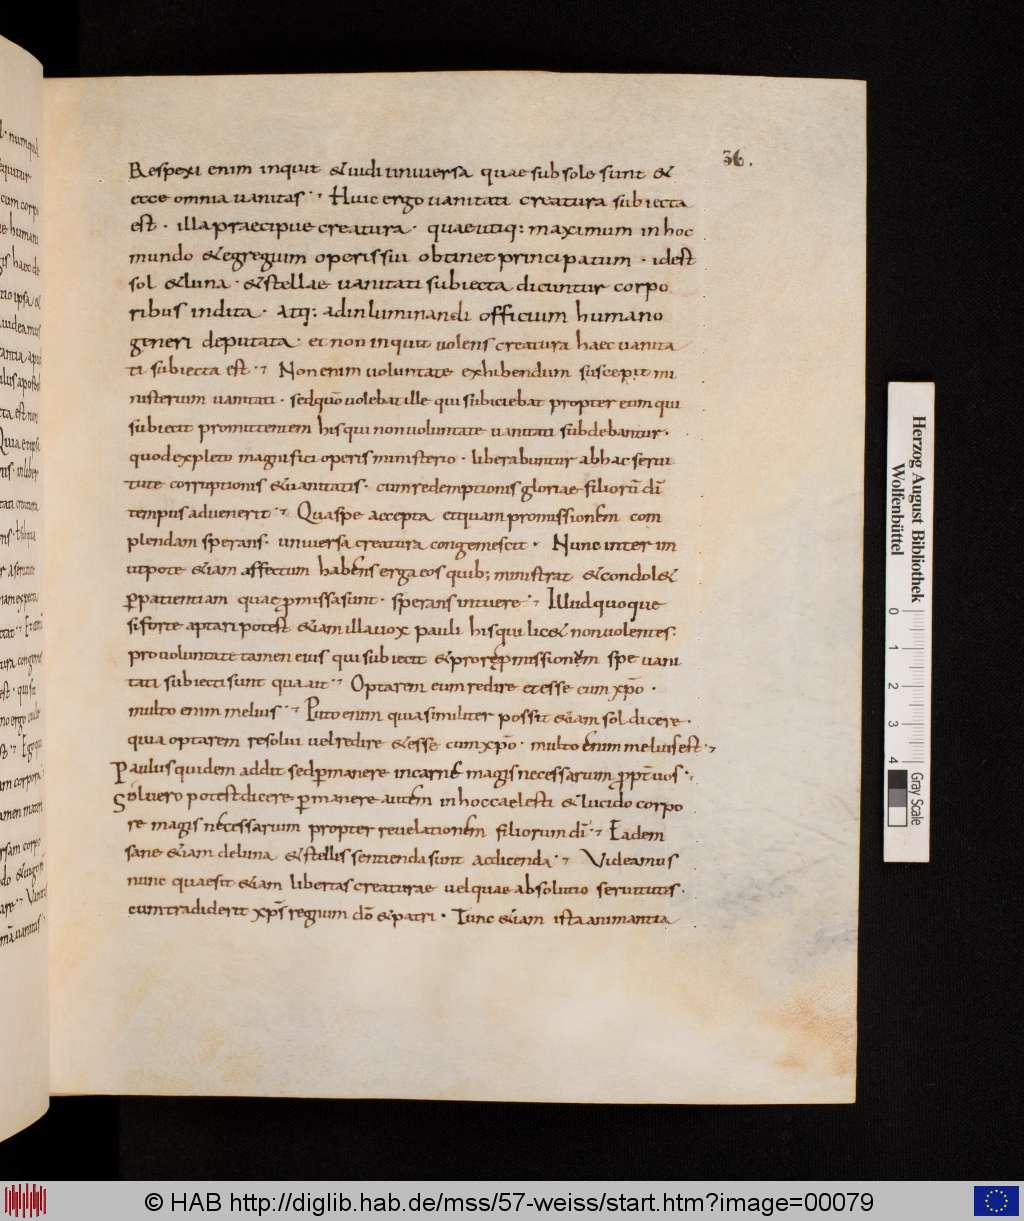 36.
Respexi enim inquit & uidi uniuersa quae sub sole sunt &
ecce omnia uanitas. Huic ergo uanitati creatura subiecta
est. illa praecipue creatura. quae utiq: maximum in hoc
mundo & egregium operis sui obtinet principatum. idest
sol & luna. & stellae uanitati subiecta dicuntur corpo
ribus indita. Atq: adinluminandi officium humano
generi deputata. et non inquit uolens creatura haec uanita
ti subiecta est. Non enim uoluntate exhibendum suscepit mi
nisterium uanitati. sed quō uolebat ille qui subiciebat propter eum qui
subiecit promittentem his qui non uoluntate uanitati subdebantur.
quod expleto magnifici operis ministerio. liberabuntur ab hac serui
tute corruptionis & uanitatis. cum redemptionis gloriae filiorū dī
tempus aduenerit. Qua spe accepta et quam promissionem com
plendam sperans. uniuersa creatura congemescit. Nunc interim
utpote &iam affectum habens erga eos quib; ministrat & condol&
p̱ patientiam quae promissa sunt. sperans intuere. Illud quoque
si forte aptari potest &iam illa uox pauli his qui lic& non uolentes.
pro uoluntate tamen eius qui subiecit & pro repromissionem spe uani
tati subiecti sunt qua ait. Optarem eum redire et esse cum xp̄o.
multo enim melius. Puto enim quia similiter possit &iam sol dicere.
quia optarem resolui uel redire & esse cum xp̄o. multo enim melius est.
Paulus quidem addit sed p̱manere in carne magis necessarum ppt uos.
Sol uero potest dicere p̱manere autem in hoc caelesti & lucido corpo
re magis necessarum propter reuelationem filiorum dī. Eadem
sane &iam de luna & stellis sentienda sunt ac dicenda. Videamus
nunc quae sit &iam libertas creaturae uel quae absolutio seruitutis.
cum tradiderit xp̄s regnum dō & patri. Tunc &iam ista animantia
Herzog August Bibliothek
Wolfenbüttel
0 1 2 3 4
Gray Scale
© HAB http://diglib.hab.de/mss/57-weiss/start.htm?image=00079